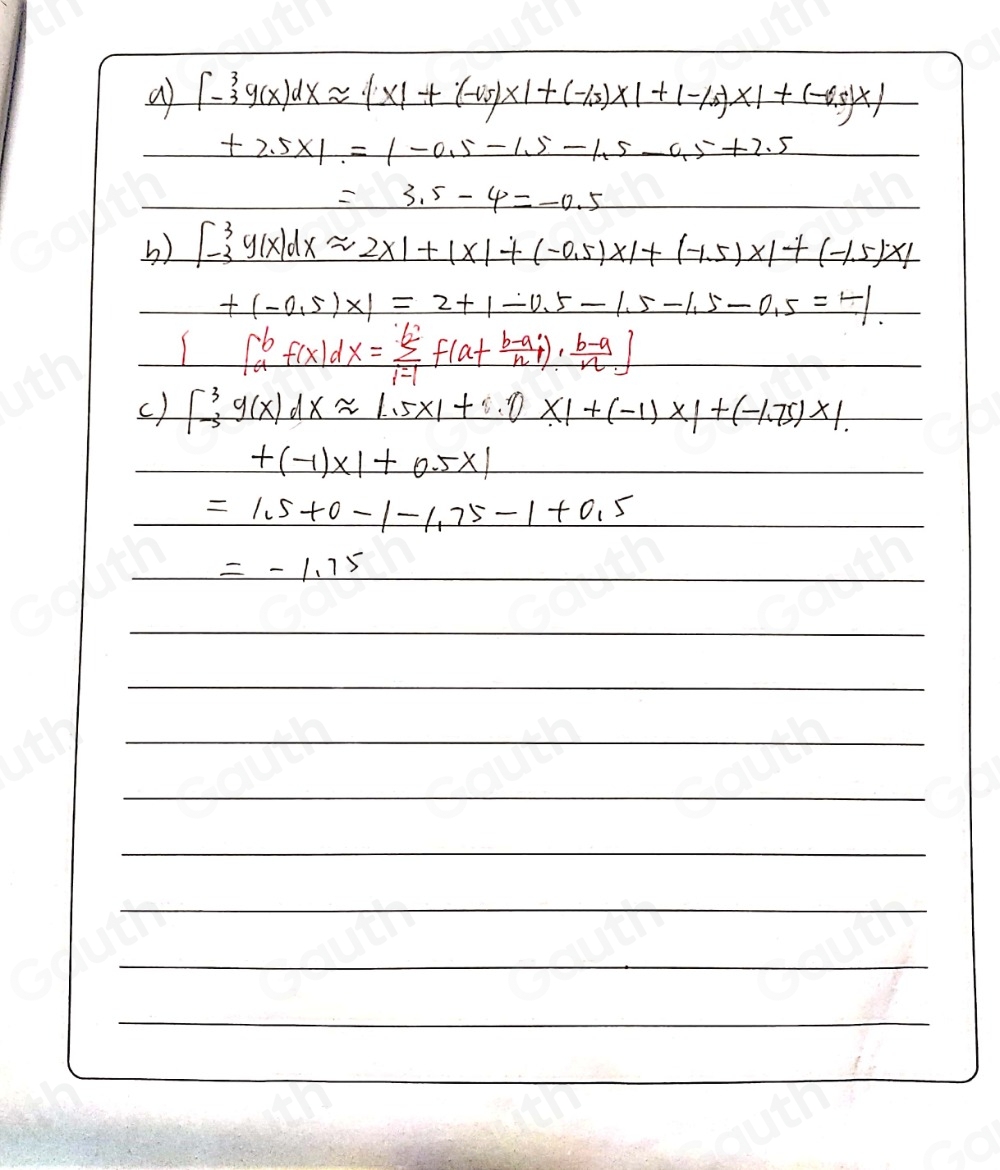 a) ∫₋₃³ g(x)dx ≈ 1×1 + (-0.5)×1 + (-1.5)×1 + (-1.5)×1 + (-0.5)×1
+ 2.5×1 = 1 - 0.5 - 1.5 - 1.5 - 0.5 + 2.5
= 3.5 - 4 = -0.5
b) ∫₋₃³ g(x)dx ≈ 2×1 + 1×1 + (-0.5)×1 + (-1.5)×1 + (-1.5)×1
+ (-0.5)×1 = 2 + 1 - 0.5 - 1.5 - 1.5 - 0.5 = -1.
[ ∫ₐᵇ f(x)dx = Σ i=1 f(a + b-a/n i) · b-a/n ]
c) ∫₋₃³ g(x)dx ≈ 1.5×1 + 0 ×1 + (-1)×1 + (-1.75)×1.
+ (-1)×1 + 0.5×1
= 1.5 + 0 - 1 - 1.75 - 1 + 0.5
= - 1.75
Gauth